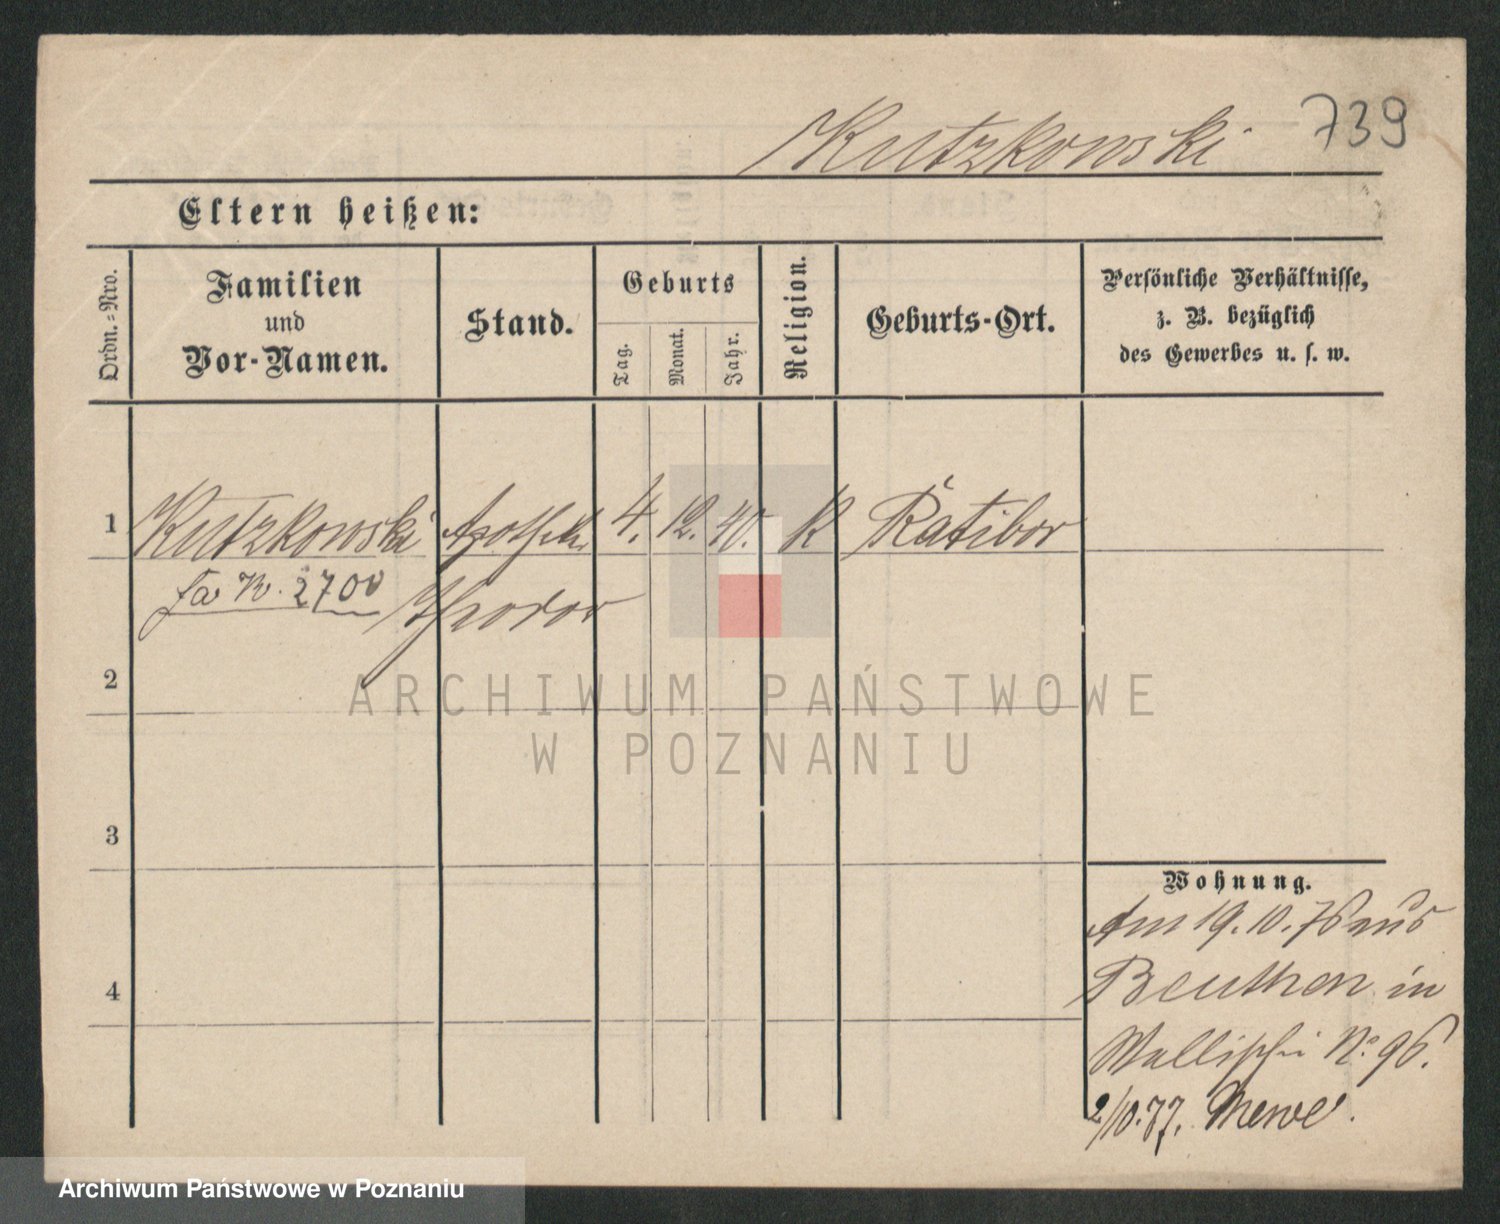 739
Kutzkowski
Eltern heißen:
Ordn.-Nro.
Familien
und
Vor-Namen.
Stand.
Geburts
Tag.
Monat.
Jahr.
Religion.
Geburts-Ort.
Persönliche Verhältnisse,
z. B. bezüglich
des Gewerbes u. s. w.
1 Kutzkowski Apotheker 4. 12. 40. K Ratibor
2700
Theodor
2
3
4
Wohnung.
Am 19.10.76 aus
Beuthen in
Wallischei No. 96.
2/10.77. Mewe.
ARCHIWUM PAŃSTWOWE
W POZNANIU
Archiwum Państwowe w Poznaniu